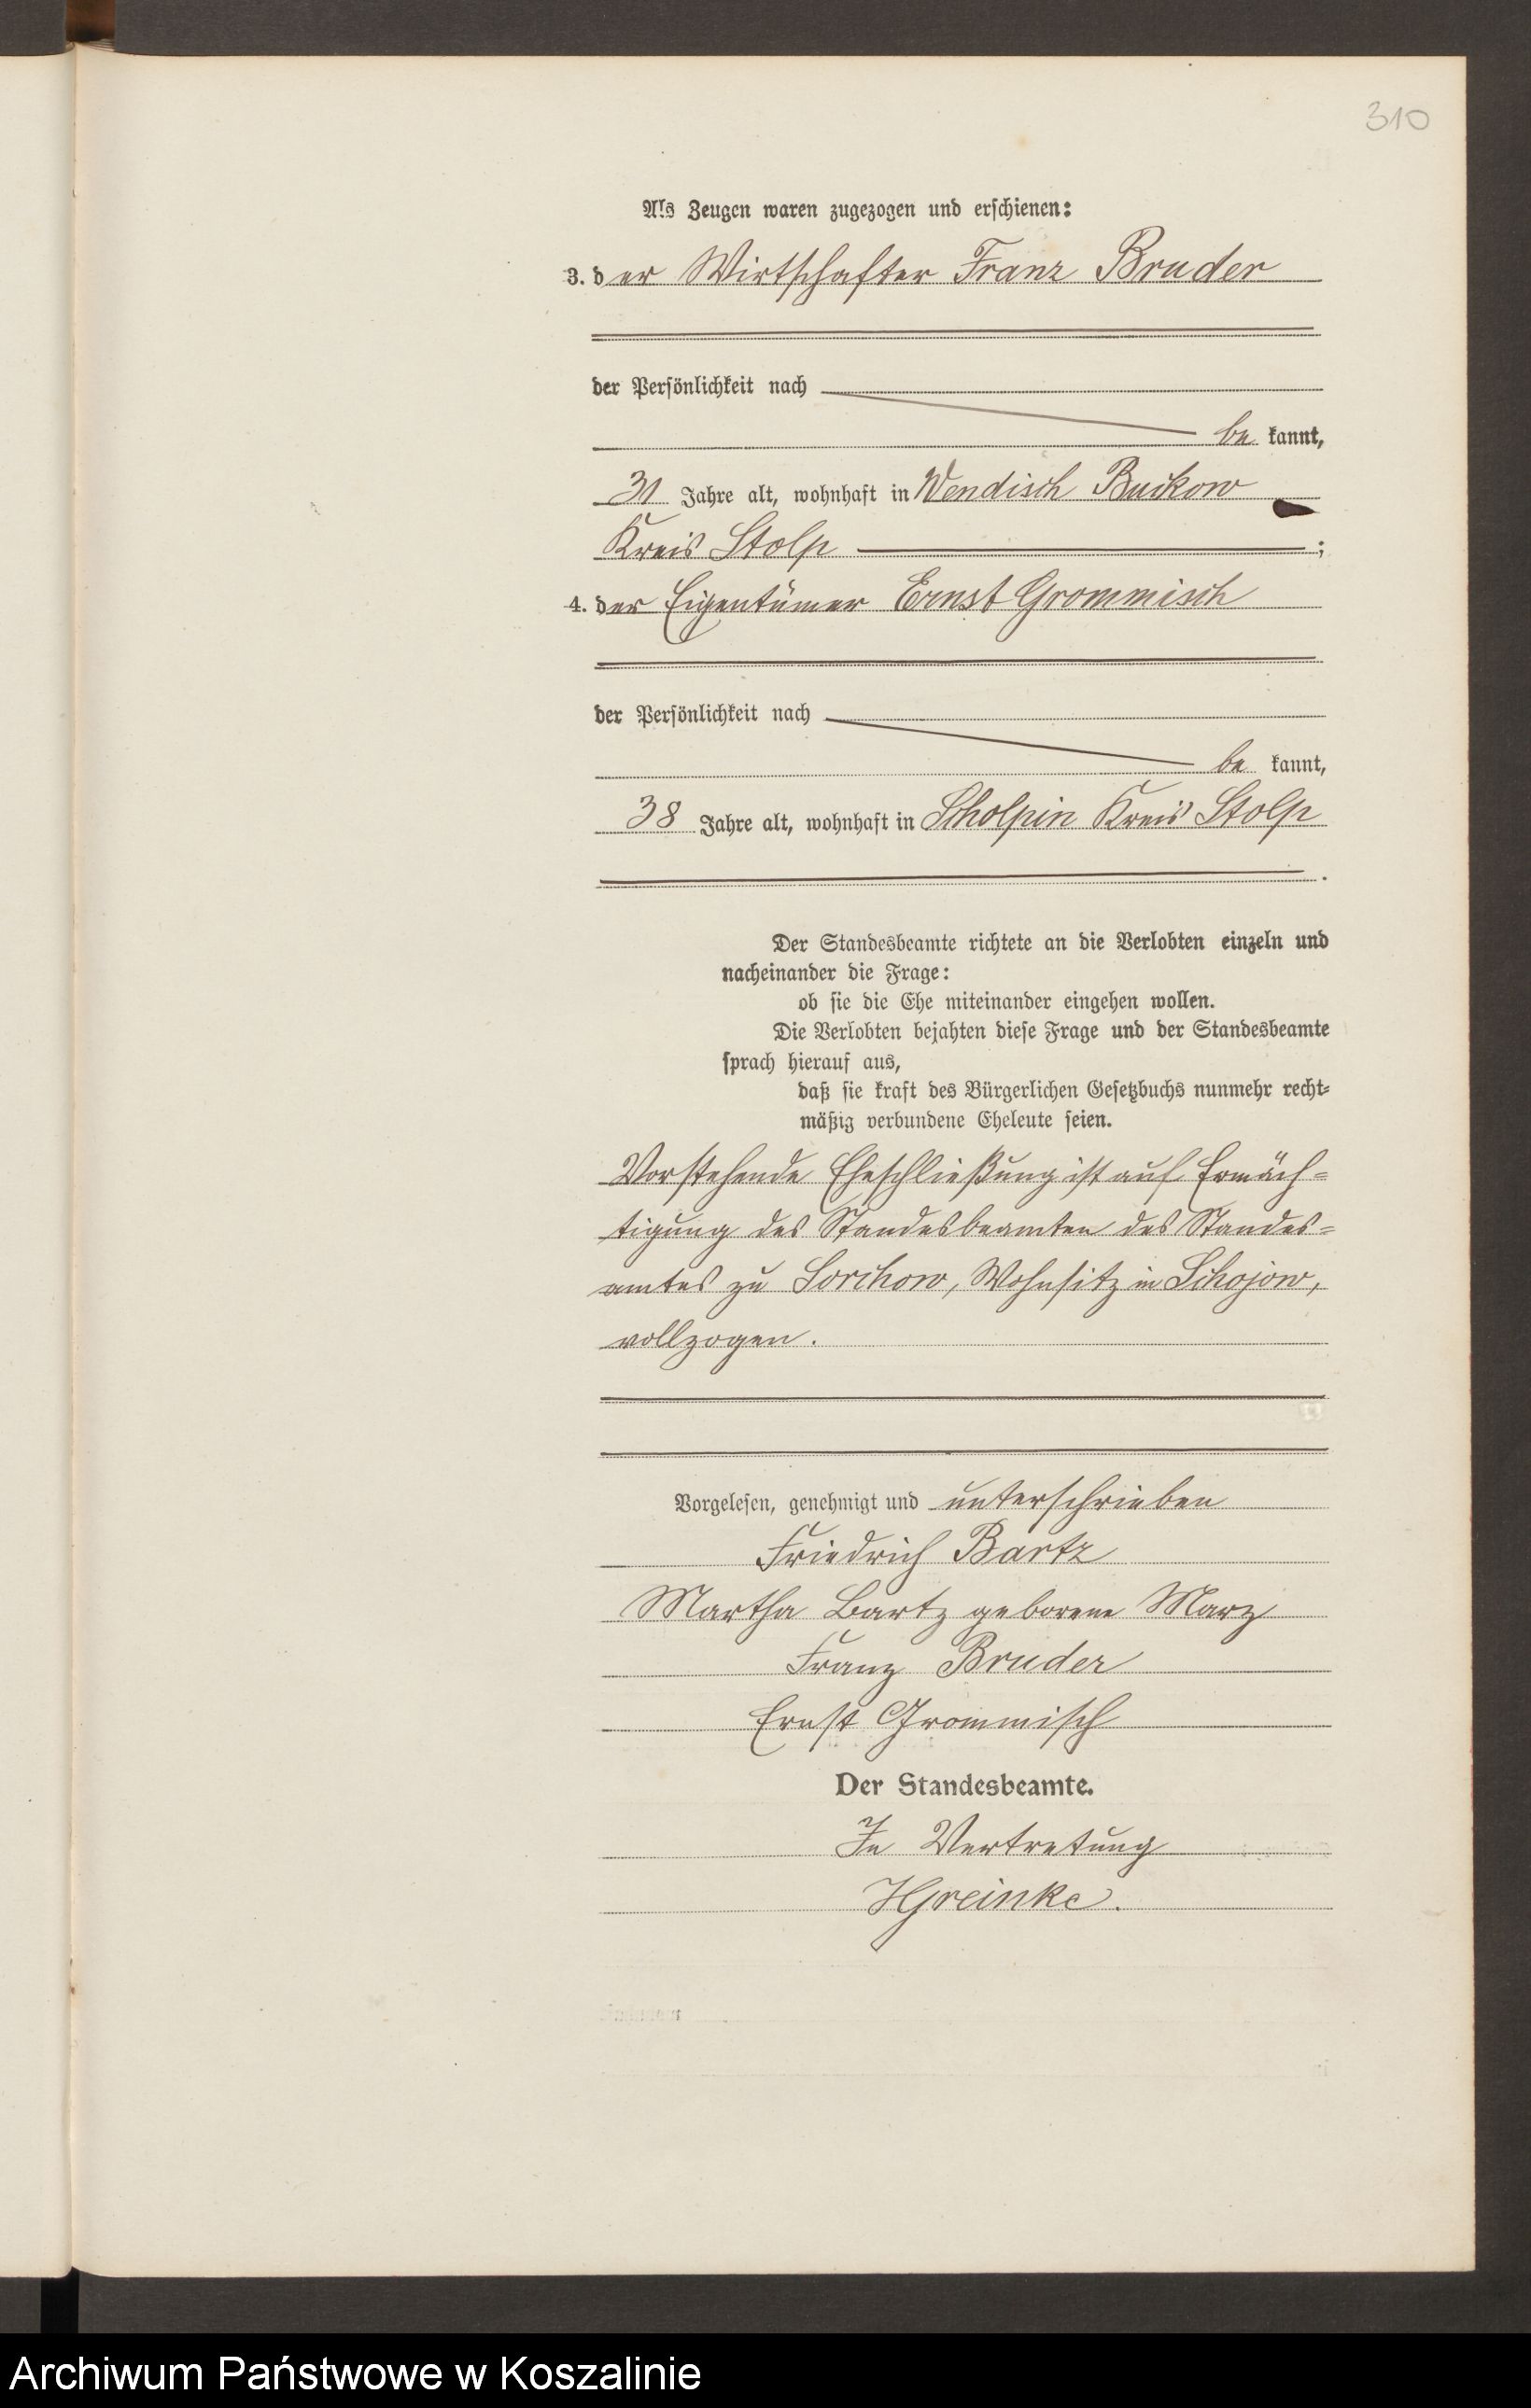 310
Als Zeugen waren zugezogen und erschienen:
3. der Wirtschafter Franz Bruder
der Persönlichkeit nach
be kannt,
31 Jahre alt, wohnhaft in Wendisch Buckow
Kreis Stolp ;
4. der Eigentümer Ernst Grommisch
der Persönlichkeit nach
be kannt,
38 Jahre alt, wohnhaft in Scholpin Kreis Stolp
.
Der Standesbeamte richtete an die Verlobten einzeln und
nacheinander die Frage:
ob sie die Ehe miteinander eingehen wollen.
Die Verlobten bejahten diese Frage und der Standesbeamte
sprach hierauf aus,
daß sie kraft des Bürgerlichen Gesetzbuchs nunmehr recht-
mäßig verbundene Eheleute seien.
Vorstehende Eheschließung ist auf Ermäch-
tigung des Standesbeamten des Standes-
amtes zu Sorchow, Wohnsitz in Schojow,
vollzogen.
Vorgelesen, genehmigt und unterschrieben
Friedrich Bartz
Martha Bartz geborene Marz
Franz Bruder
Ernst Grommisch
Der Standesbeamte.
In Vertretung
HGreinke.
Archiwum Państwowe w Koszalinie